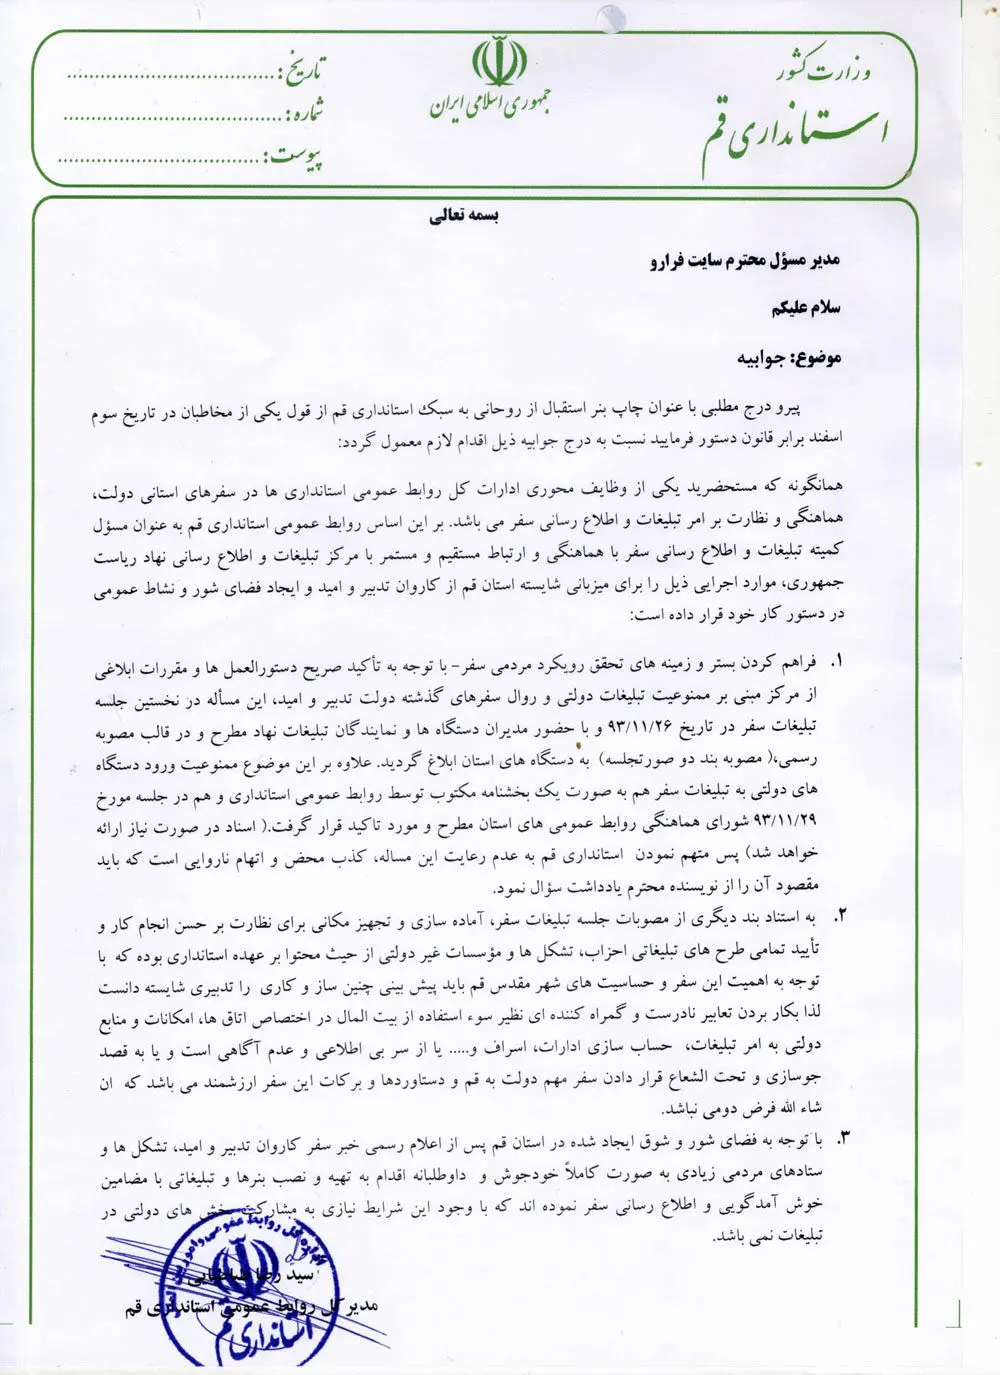 وزارت کشور
استانداری قم
جمهوری اسلامی ایران
تاریخ:
شماره:
پیوست:
بسمه تعالی
مدیر مسؤل محترم سایت فرارو
سلام علیکم
موضوع: جوابیه
پیرو درج مطلبی با عنوان چاپ بنر استقبال از روحانی به سبک استانداری قم از قول یکی از مخاطبان در تاریخ سوم
اسفند برابر قانون دستور فرمایید نسبت به درج جوابیه ذیل اقدام لازم معمول گردد:
همانگونه که مستحضرید یکی از وظایف محوری ادارات کل روابط عمومی استانداری ها در سفرهای استانی دولت،
هماهنگی و نظارت بر امر تبلیغات و اطلاع رسانی سفر می باشد. بر این اساس روابط عمومی استانداری قم به عنوان مسؤل
کمیته تبلیغات و اطلاع رسانی سفر با هماهنگی و ارتباط مستقیم و مستمر با مرکز تبلیغات و اطلاع رسانی نهاد ریاست
جمهوری، موارد اجرایی ذیل را برای میزبانی شایسته استان قم از کاروان تدبیر و امید و ایجاد فضای شور و نشاط عمومی
در دستور کار خود قرار داده است:
۱. فراهم کردن بستر و زمینه های تحقق رویکرد مردمی سفر- با توجه به تأکید صریح دستورالعمل ها و مقررات ابلاغی
از مرکز مبنی بر ممنوعیت تبلیغات دولتی و روال سفرهای گذشته دولت تدبیر و امید، این مسأله در نخستین جلسه
تبلیغات سفر در تاریخ ۹۳/۱۱/۲۶ و با حضور مدیران دستگاه ها و نمایندگان تبلیغات نهاد مطرح و در قالب مصوبه
رسمی،( مصوبه بند دو صورتجلسه) به دستگاه های استان ابلاغ گردید. علاوه بر این موضوع ممنوعیت ورود دستگاه
های دولتی به تبلیغات سفر هم به صورت یک بخشنامه مکتوب توسط روابط عمومی استانداری و هم در جلسه مورخ
۹۳/۱۱/۲۹ شورای هماهنگی روابط عمومی های استان مطرح و مورد تاکید قرار گرفت.( اسناد در صورت نیاز ارائه
خواهد شد) پس متهم نمودن استانداری قم به عدم رعایت این مساله، کذب محض و اتهام ناروایی است که باید
مقصود آن را از نویسنده محترم یادداشت سؤال نمود.
۲. به استناد بند دیگری از مصوبات جلسه تبلیغات سفر، آماده سازی و تجهیز مکانی برای نظارت بر حسن انجام کار و
تأیید تمامی طرح های تبلیغاتی احزاب، تشکل ها و مؤسسات غیر دولتی از حیث محتوا بر عهده استانداری بوده که با
توجه به اهمیت این سفر و حساسیت های شهر مقدس قم باید پیش بینی چنین ساز و کاری را تدبیری شایسته دانست
لذا بکار بردن تعابیر نادرست و گمراه کننده ای نظیر سوء استفاده از بیت المال در اختصاص اتاق ها، امکانات و منابع
دولتی به امر تبلیغات، حساب سازی ادارات، اسراف و..... یا از سر بی اطلاعی و عدم آگاهی است و یا به قصد
جوسازی و تحت الشعاع قرار دادن سفر مهم دولت به قم و دستاوردها و برکات این سفر ارزشمند می باشد که ان
شاء الله فرض دومی نباشد.
۳. با توجه به فضای شور و شوق ایجاد شده در استان قم پس از اعلام رسمی خبر سفر کاروان تدبیر و امید، تشکل ها و
ستادهای مردمی زیادی به صورت کاملاً خودجوش و داوطلبانه اقدام به تهیه و نصب بنرها و تبلیغاتی با مضامین
خوش آمدگویی و اطلاع رسانی سفر نموده اند که با وجود این شرایط نیازی به مشارکت بخش های دولتی در
تبلیغات نمی باشد.
سید رضا طباطبایی
مدیر کل روابط عمومی استانداری قم
استانداری قم